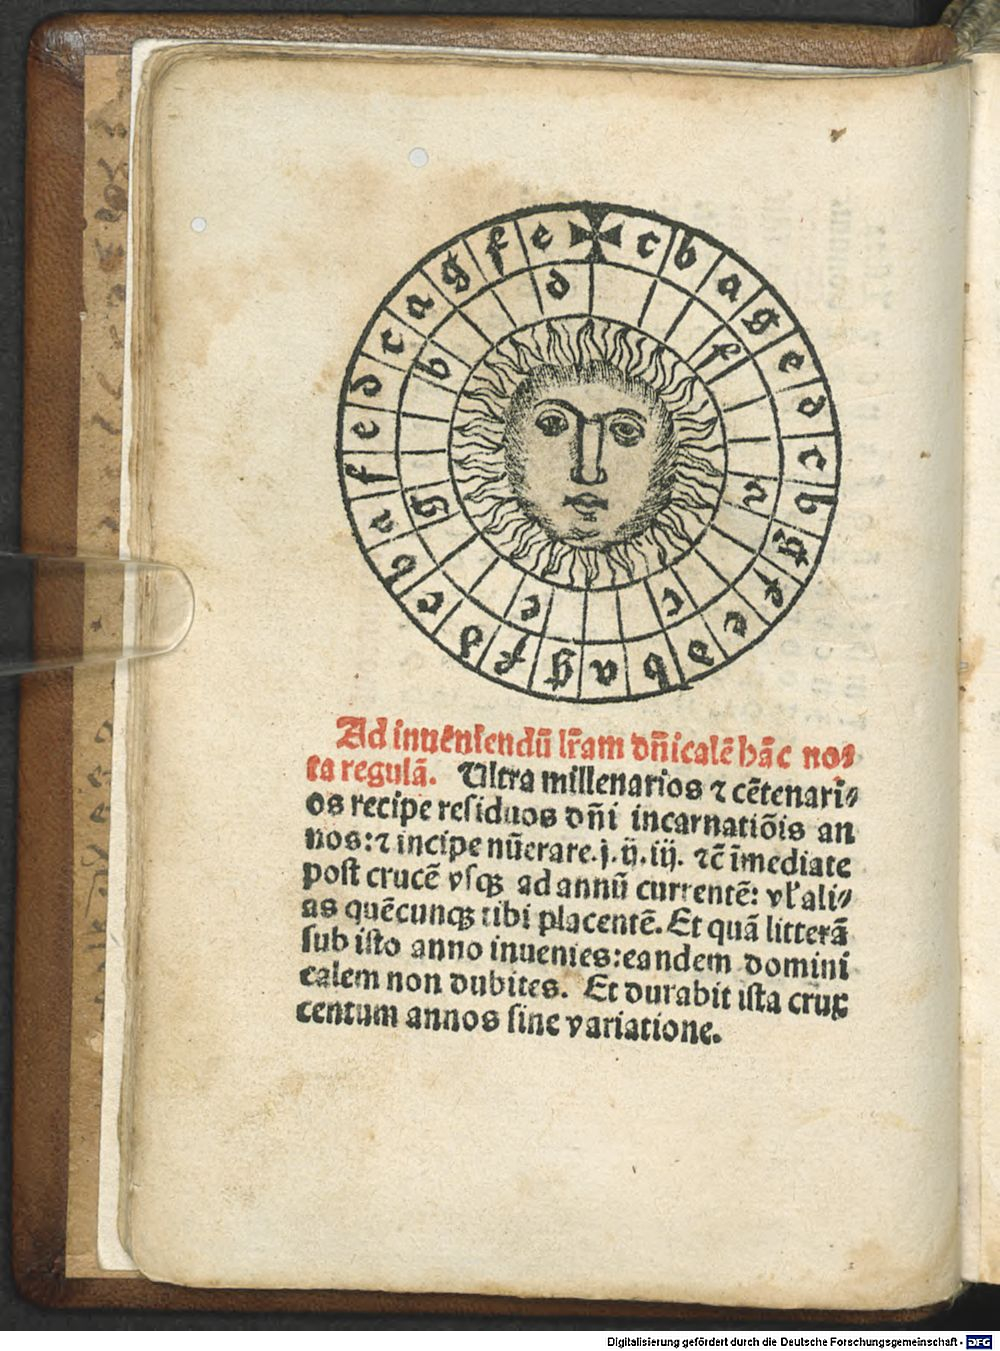 c b a g e d c b g f e d b a g f d c b a f e d c a g f e
f a c e g b d
Ad inueniendū lr̄am dn̄icalē hāc no⸗
ta regulā. Ultra millenarios ⁊ cētenari⸗
os recipe residuos dn̄i incarnatiōis an
nos:⁊ incipe nūerare.j.ij.iij. ⁊c̄ īmediate
post crucē vsqꝫ ad annū currentē: vl' ali⸗
as quēcunqꝫ tibi placentē. Et quā litterā
sub isto anno inuenies:eandem domini
calem non dubites. Et durabit ista crux
centum annos sine variatione.
Digitalisierung gefördert durch die Deutsche Forschungsgemeinschaft - DFG